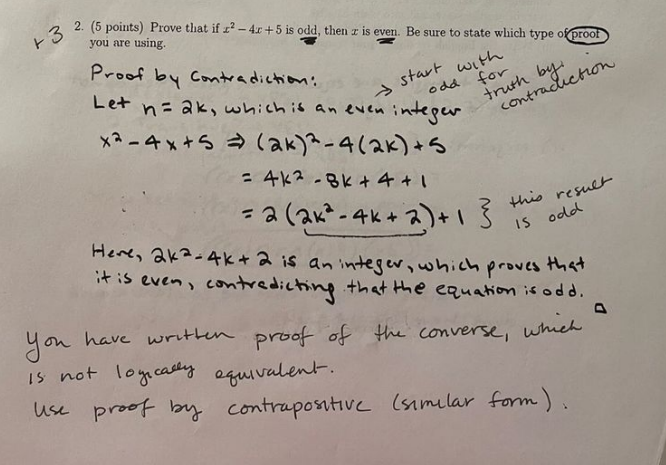 +3
2. (5 points) Prove that if x² − 4x + 5 is odd, then x is even. Be sure to state which type of proof
you are using.
Proof by Contradiction:
→ start with
odd for
truth by
contradiction
Let n = 2k, which is an even integer
x² - 4x + 5 ⇒ (2k)² - 4(2k) + 5
= 4k² - 8k + 4 + 1
= 2(2k² - 4k + 2) + 1 } this result
is odd
Here, 2k² - 4k + 2 is an integer, which proves that
it is even, contradicting that the equation is odd.
□
You have written proof of the converse, which
is not logically equivalent.
Use proof by contrapositive (similar form).